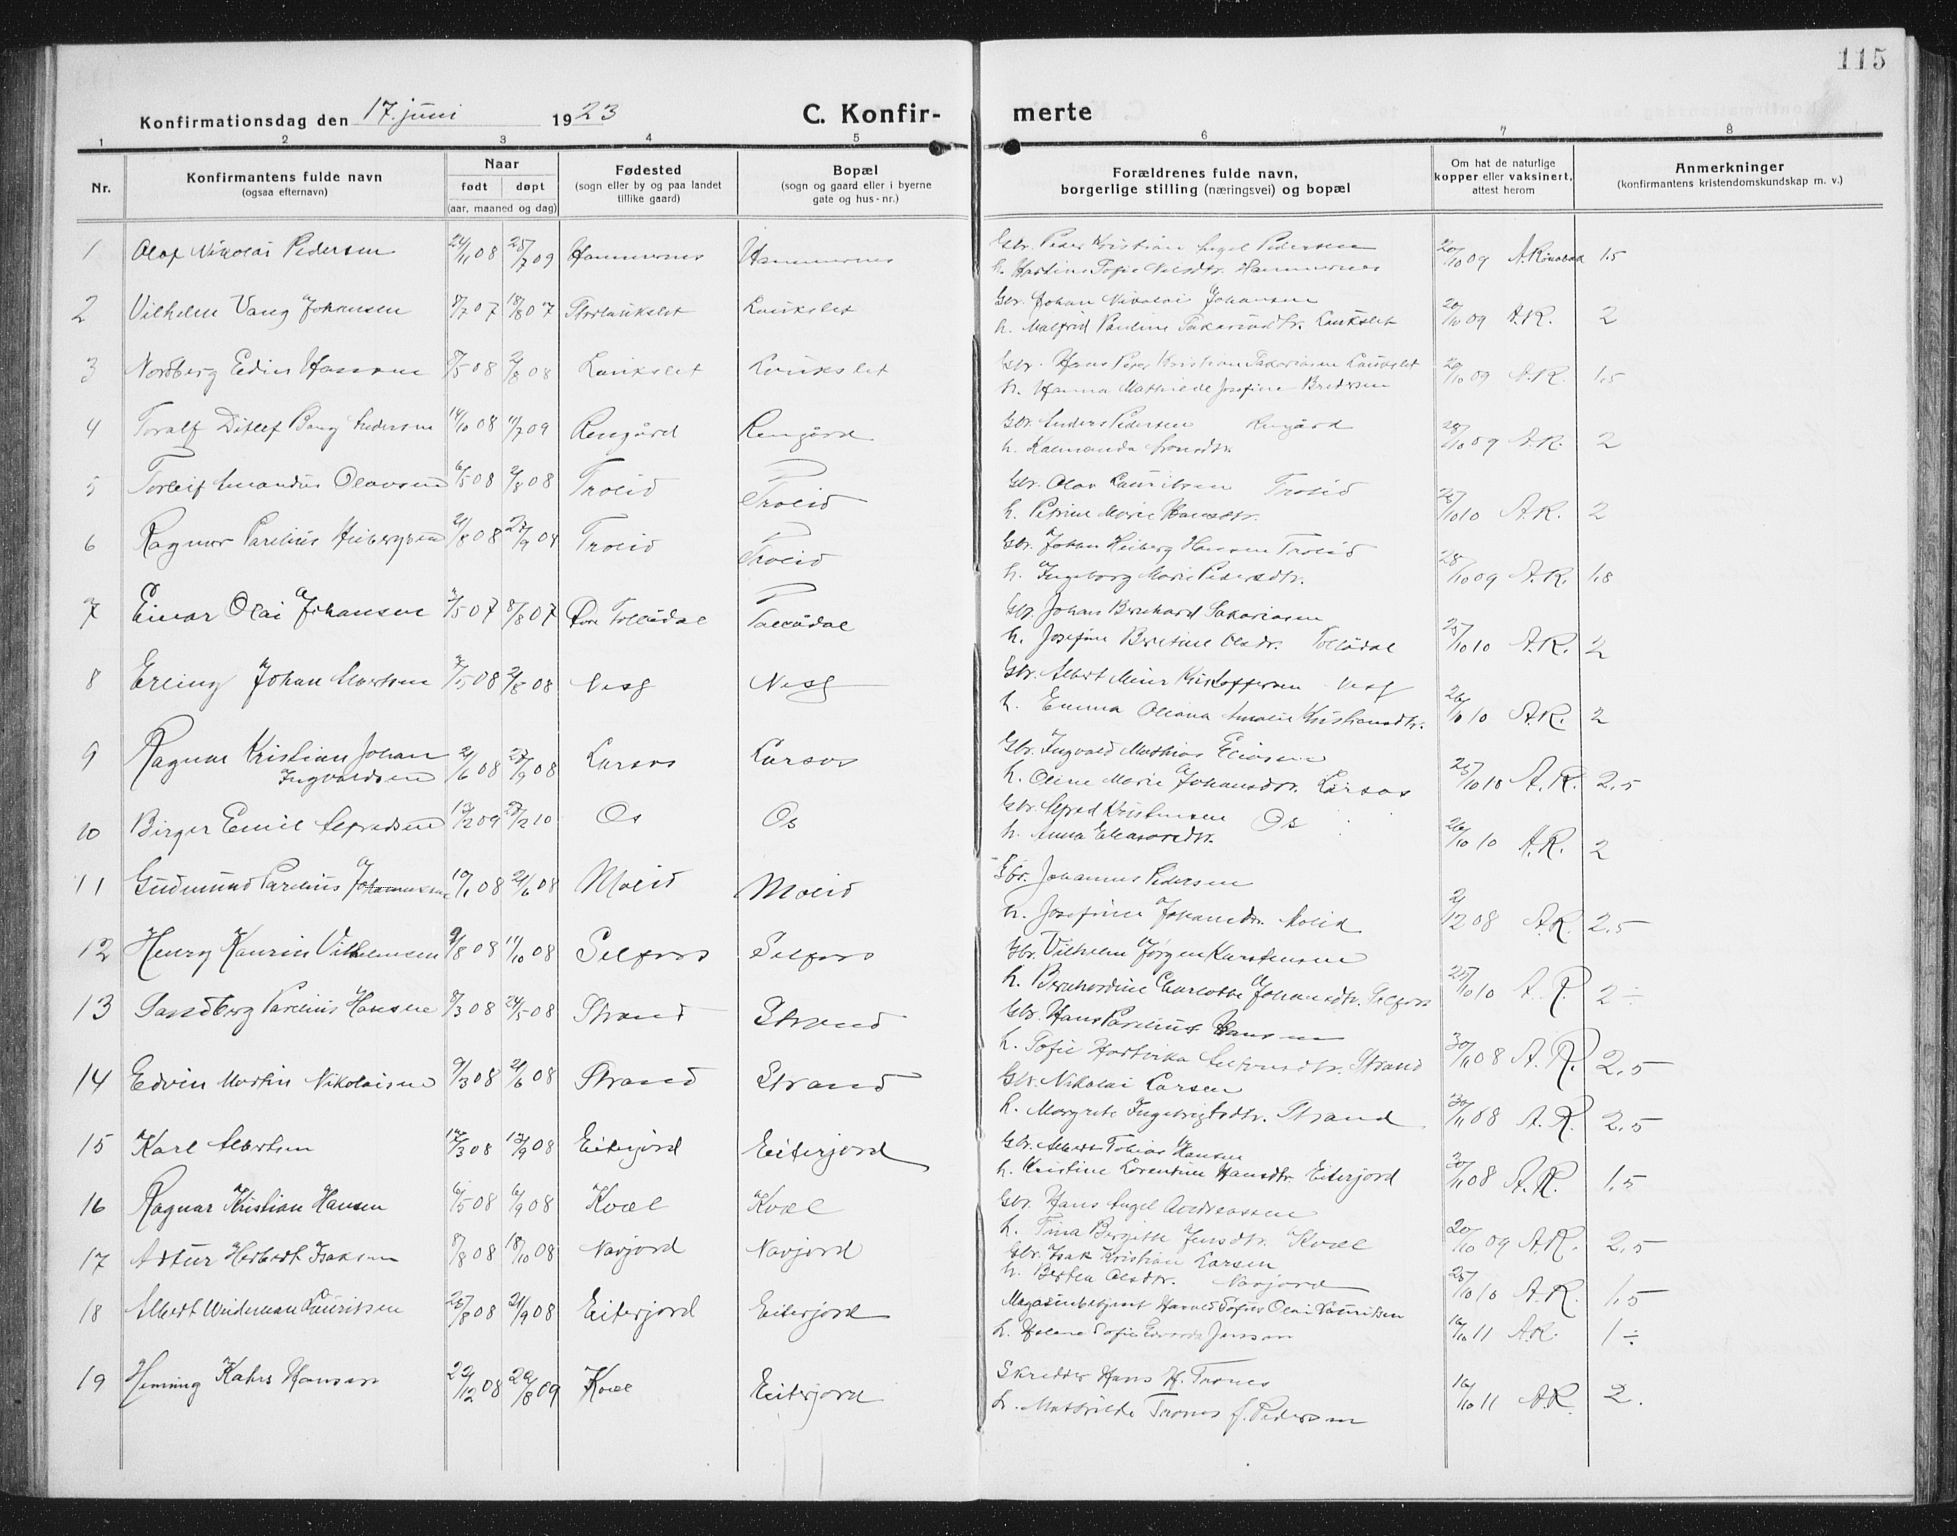 115
Konfirmationsdag den 17. juni 1923
C. Konfirmerte
1 2 3 4 5 6 7 8
Nr.
Konfirmantens fulde navn
(ogsaa efternavn)
Naar
født døpt
(aar, maaned og dag)
Fødested
(sogn eller by og paa landet
tillike gaard)
Bopæl
(sogn og gaard eller i byerne
gate og hus-nr.)
Forældrenes fulde navn,
borgerlige stilling (næringsvei) og bopæl
Om hat de naturlige
kopper eller vaksinert,
attest herom
Anmerkninger
(konfirmantens kristendomskundskap m. v.)
1 Olaf Nikolai Pedersen 24/11 08 25/7 09 Hammernes Hammernes Gbr. Peder Kristian Angel Pedersen 20/10 09 1.5
h. Sofie Hammernes
2 Vilhelm Vang Johansen 8/7 07 18/8 07 Laukslet Gbr. Johan Nikolai Johansen 20/10 09 A.R. 2
h. Malfrid Pauline Laukslet
3 Nordberg Edin Hansen 8/5 08 2/8 08 Laukslet Laukslet Gbr. Hans Peder Kristian Laukslet 20/10 09 A.R. 1.5
h. Hanna Mathilde Josefine
4 Toralf Ditlef Bang Andersen 14/10 08 11/7 09 Rengård Rengård Gbr. Anders Pedersen Rengård 28/10 09 A.R. 2
h. Kalmanda
5 Torleif Amandus Olavsen 6/5 08 2/8 08 Trolid Trolid Gbr. Olav Lauritsen Trolid 25/10 10 A.R. 2
h. Petrine Marie Hansdtr.
6 Ragnar Parelius Heibergsen 21/8 08 27/9 08 Trolid Trolid Gbr. Johan Heiberg Hansen Trolid 28/10 09 A.R. 1.8
h. Ingeborg Marie Pedersdtr.
7 Einar Olai Johansen 3/5 07 8/8 07 Tollådal Tollådal Gbr. Johan Bernhard Sakariasen 25/10 10 A.R. 2
h. Josefine Olsdtr. Tollådal
8 Erling Johan Albertsen 3/5 08 2/8 08 Nesf Nesf Gbr. Albert Meier Kristoffersen Nesf 26/10 10 A.R. 2
h. Emma Oliana Amalie Kristiansdtr.
9 Ragnar Kristian Johan 21/6 08 27/9 08 Larsos Larsos Gbr. Ingvald Mathias Eliasen 25/10 10 A.R. 2.5
Ingvaldsen h. Oline Marie Johansdtr. Larsos
10 Birger Emil Alfredsen 13/12 09 27/2 10 Os Os Gbr. Alfred Kristensen Os 26/10 10 A.R. 2
h. Anna
11 Gudmund Parelius Johannessen 10/1 08 21/6 08 Molid Molid Gbr. Johannes Pedersen 2/12 08 A.R. 2.5
h. Josefine Johansdtr. Molid
12 Henry Kaurin Vilhelmsen 9/8 08 11/10 08 Selfors Selfors Gbr. Vilhelm Jørgen Karstensen 25/10 10 A.R. 2 ÷
h. Bernhardine Charlotte Johansdtr. Selfors
13 Sandberg Parelius Hansen 8/3 08 24/5 08 Strand Strand Gbr. Hans Parelius Hansen 30/11 08 A.R. 2.5
h. Sofie Hartvika Strand
14 Edvin Martin Nikolaisen 9/3 08 21/6 08 Strand Strand Gbr. Nikolai Larsen 30/11 08 A.R. 2.5
h. Margrete Ingebrigtsdtr. Strand
15 Karl Albertsen 13/9 08 Eiterjord Eiterjord Gbr. Albert Tobias Hansen 30/11 08 A.R. 1.5
h. Kristine Lorentine Hansdtr. Eiterjord
16 Ragnar Kristian Hansen 6/5 08 6/9 08 Kvæl Kvæl Gbr. Hans Angel Andreassen 20/10 09 A.R. 2.5
h. Tina Birgitte Jensdtr. Kvæl
17 Artur Herbert Isaksen 8/8 08 18/10 08 Navjord Navjord Gbr. Isak Kristian Larsen 25/10 10 A.R. 1.5
h. Bertea Olsdtr. Navjord
18 Albert Weideman Lauritsen 25/8 08 21/9 08 Eiterjord Eiterjord Magasinbetjent Harald Olai Lauritsen 16/10 11 A.R. 1 ÷
h. Helene Sofie Edvarda Jensen
19 Henning Kahrs Hansen 22/12 08 22/8 09 Kvæl Eiterjord Skredder Hans H. Trones 16/10 11 A.R. 2.
h. Mathilde Trones f. Pedersen